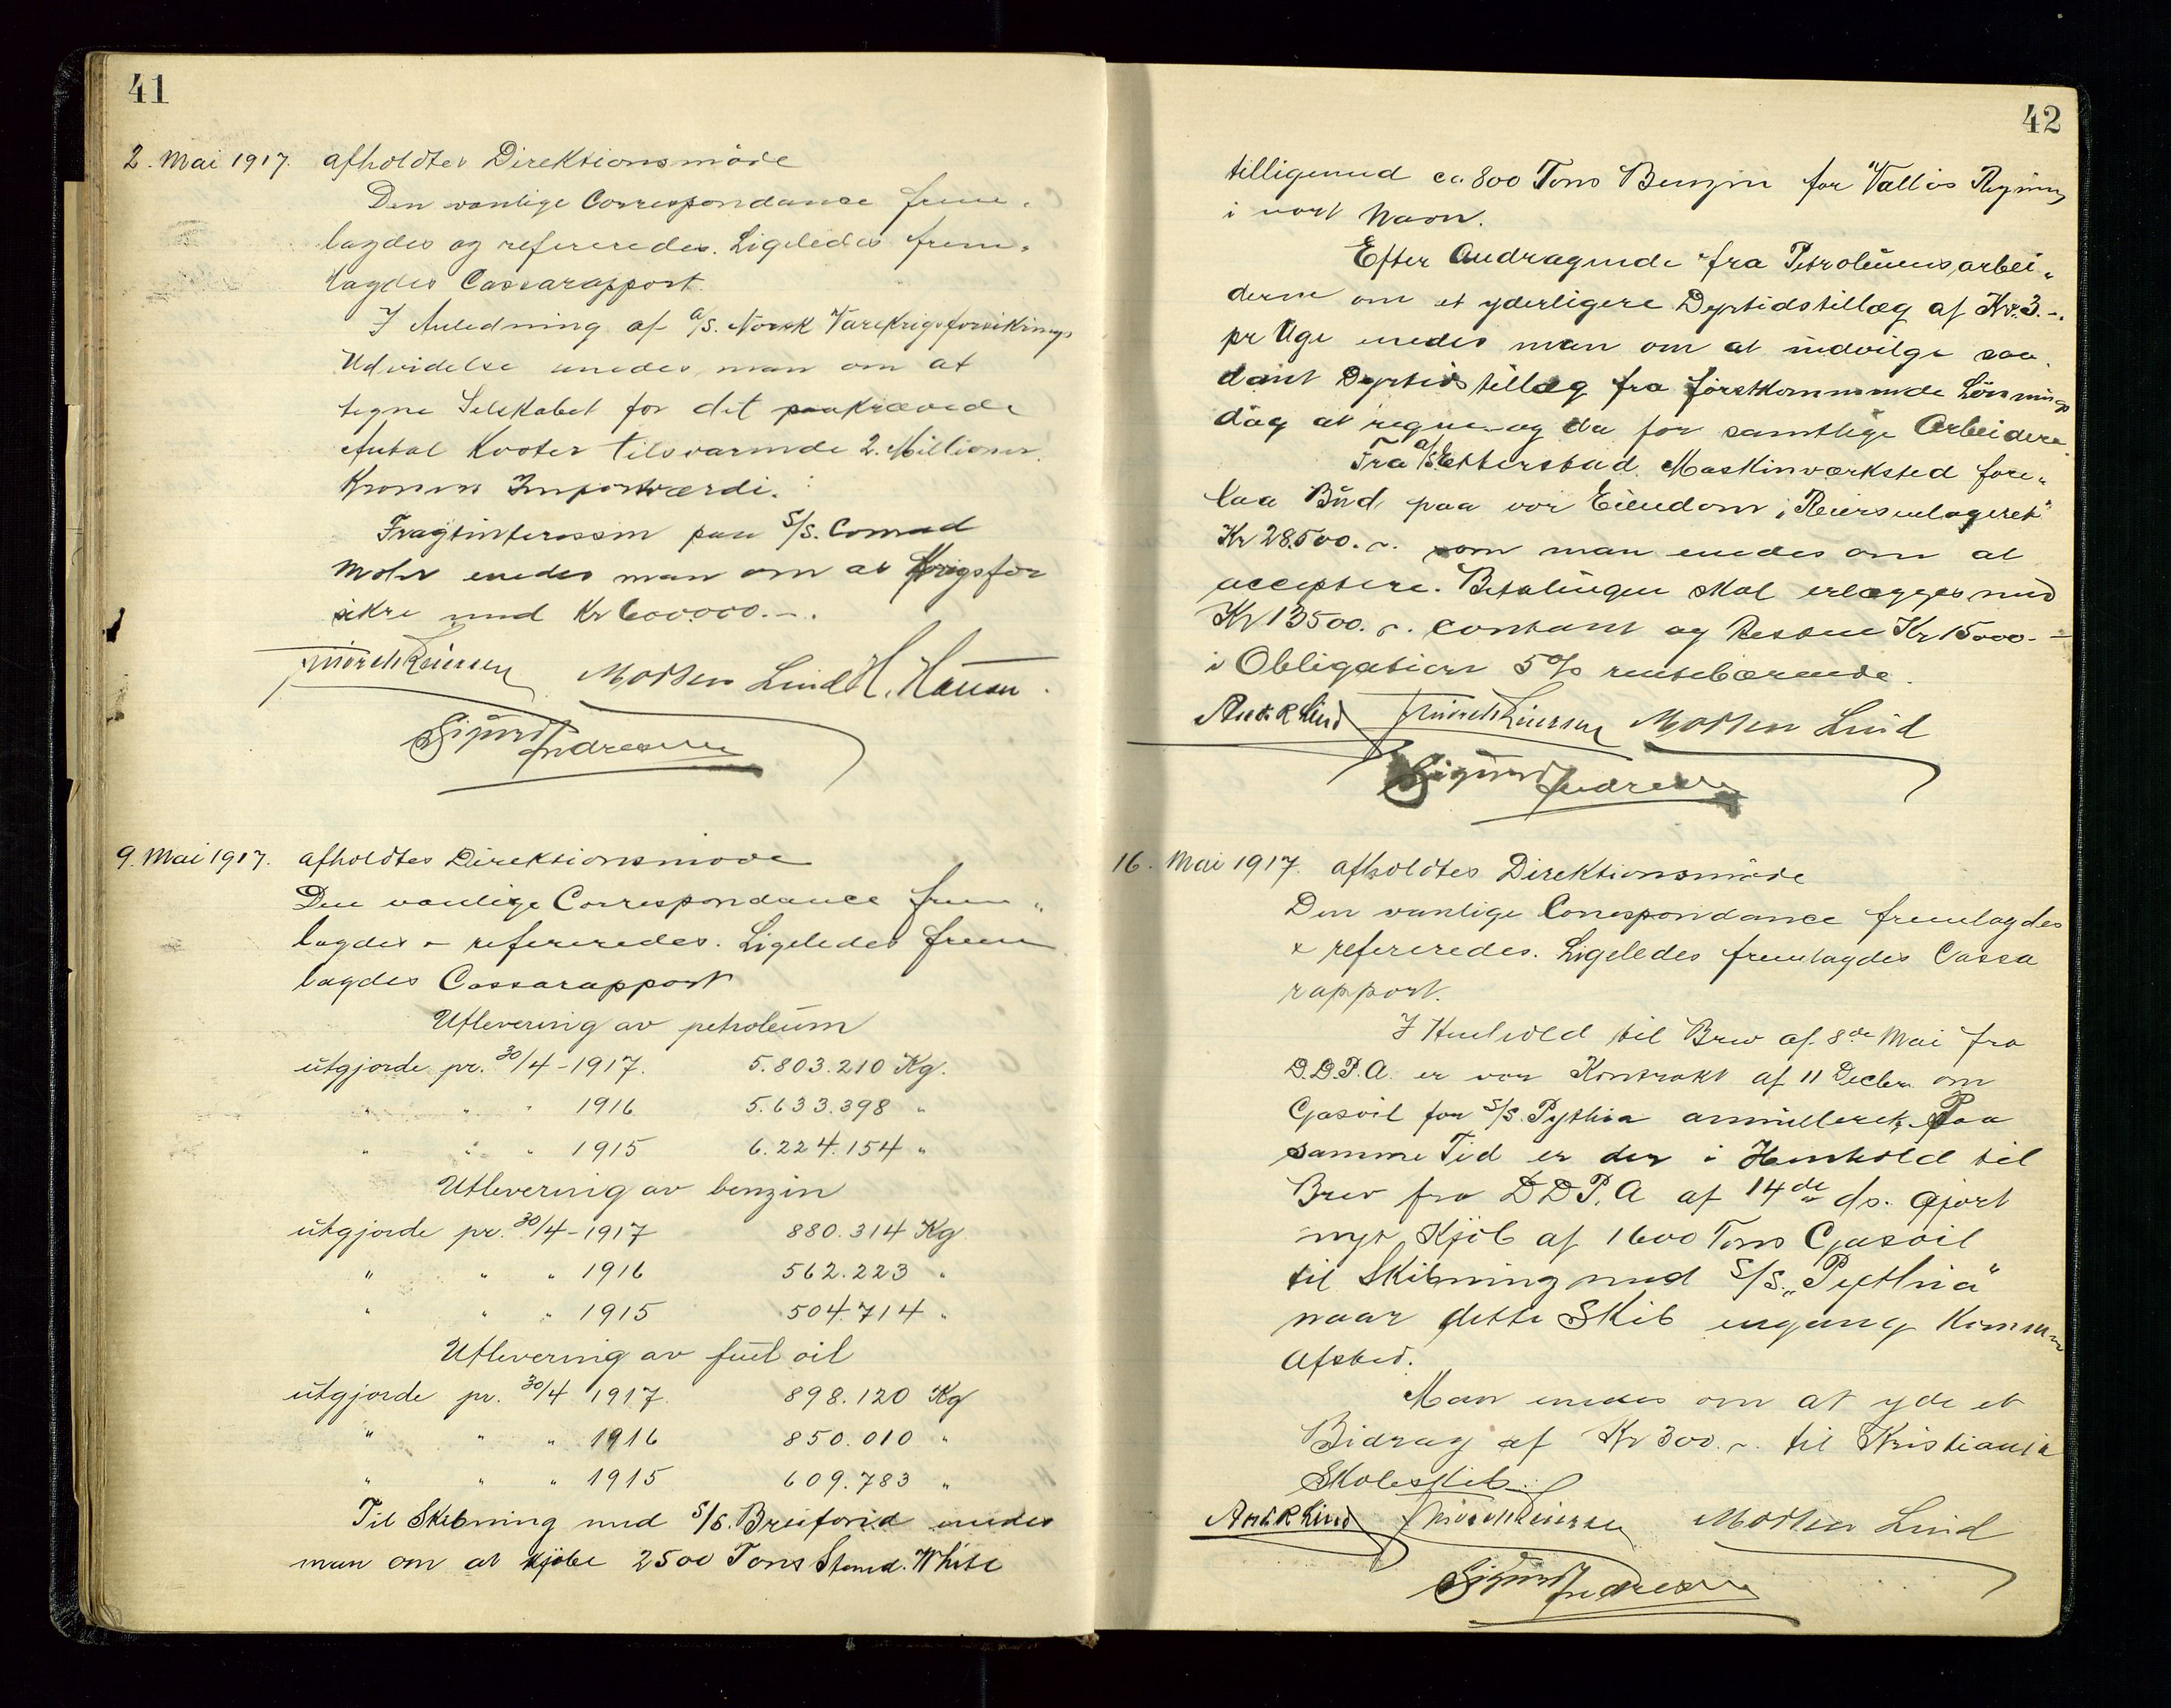 41
2. Mai 1917. afholdtes Direktionsmöde
Den vanlige Correspondance frem-
lagdes og refereredes. Ligeledes frem-
lagdes Cassarapport.
I Anledning af A/S. Norsk Varekrigsforsikrings
Udvidelse enedes man om at
tegne Selskabet for det paakrævede
Antal Kvoter tilsvarende 2. Millioner
Kroners Importværdi.
Fragtinteressen paa S/S. Conrad
Mohr enedes man om at Krigsfor
sikre med Kr 600.000.-.
Morten Lind H. Hansen
Sigurd Andresen
9. Mai 1917. afholdtes Direktionsmöde
Den vanlige Correspondance frem-
lagdes & refereredes. Ligeledes frem
lagdes Cassarapport
Utlevering av petroleum
utgjorde pr. 30/4-1917. 5.803.210 Kg.
" " " 1916 5.633.398 "
" " " 1915 6.224.154 "
Utlevering av benzin
utgjorde pr. 30/4-1917 880.314 Kg
" " " 1916 562.223 "
" " " 1915 504.714 "
Utlevering av fuel oil
utgjorde pr. 30/4 1917. 898.120 Kg
" " " 1916 850.010 "
" " " 1915 609.783 "
Til Skibning med S/S. Breiford enedes
man om at kjöbe 2500 Tons Stand. White
42
tilligemed ca. 800 Tons Benzin for Vallös Regning
i vort Navn.
Efter Andragende fra Petroleumsarbei-
derne om et yderligere Dyrtidstillæg af Kr. 3.-.
pr Uge enedes man om at indvilge saa
dant Dyrtidstillæg fra förstkommende Lönnings
dag at regne og da for samtlige Arbeidere.
Fra A/S Etterstad Maskinværksted fore-
laa Bud paa vor Eiendom "Reiersenlageret"
Kr 28.500.-. som man enedes om at
acceptere. Betalingen skal erlægges med
Kr 13500.-. contant og Resten Kr 15000.-
i Obligation 5% rentebærende.
Morten Lind
Sigurd Andresen
16. Mai 1917. afholdtes Direktionsmöde
Den vanlige Correspondance fremlagdes
& refereredes. Ligeledes fremlagdes Cassa
rapport.
I Henhold til Brev af 8de Mai fra
D.D.P.A. er vor Kontrakt af 11 Decbr. om
Gasoil for S/S. Pythia annulleret. Paa
samme Tid er der i Henhold til
Brev fra D D P. A af 14de ds. gjort
nyt Kjöb af 1600 Tons Gasoil
til Skibning med S/S. "Pythia"
naar dette Skib engang kommer
Afsted.
Man enedes om at yde et
Bidrag af Kr 300.-. til Kristiania
Skoleskib.
Morten Lind
Sigurd Andresen